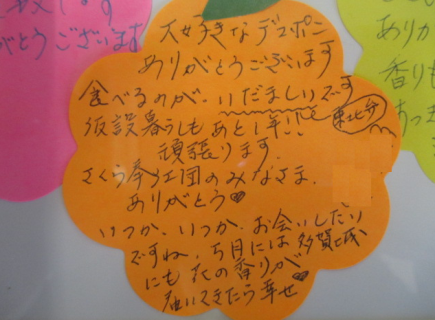 ありがとうございます
大好きなデコポン
ありがとうございます
食べるのが、いたましいです
東北弁
仮設暮らしもあと1年!!
頑張ります
さくら拳工団のみなさま、
ありがとう♥
いつか、いつか、お会いしたい
ですね、5月には多賀城
にも花の香りが
届いてきたら幸せ♥
ありか
香りも